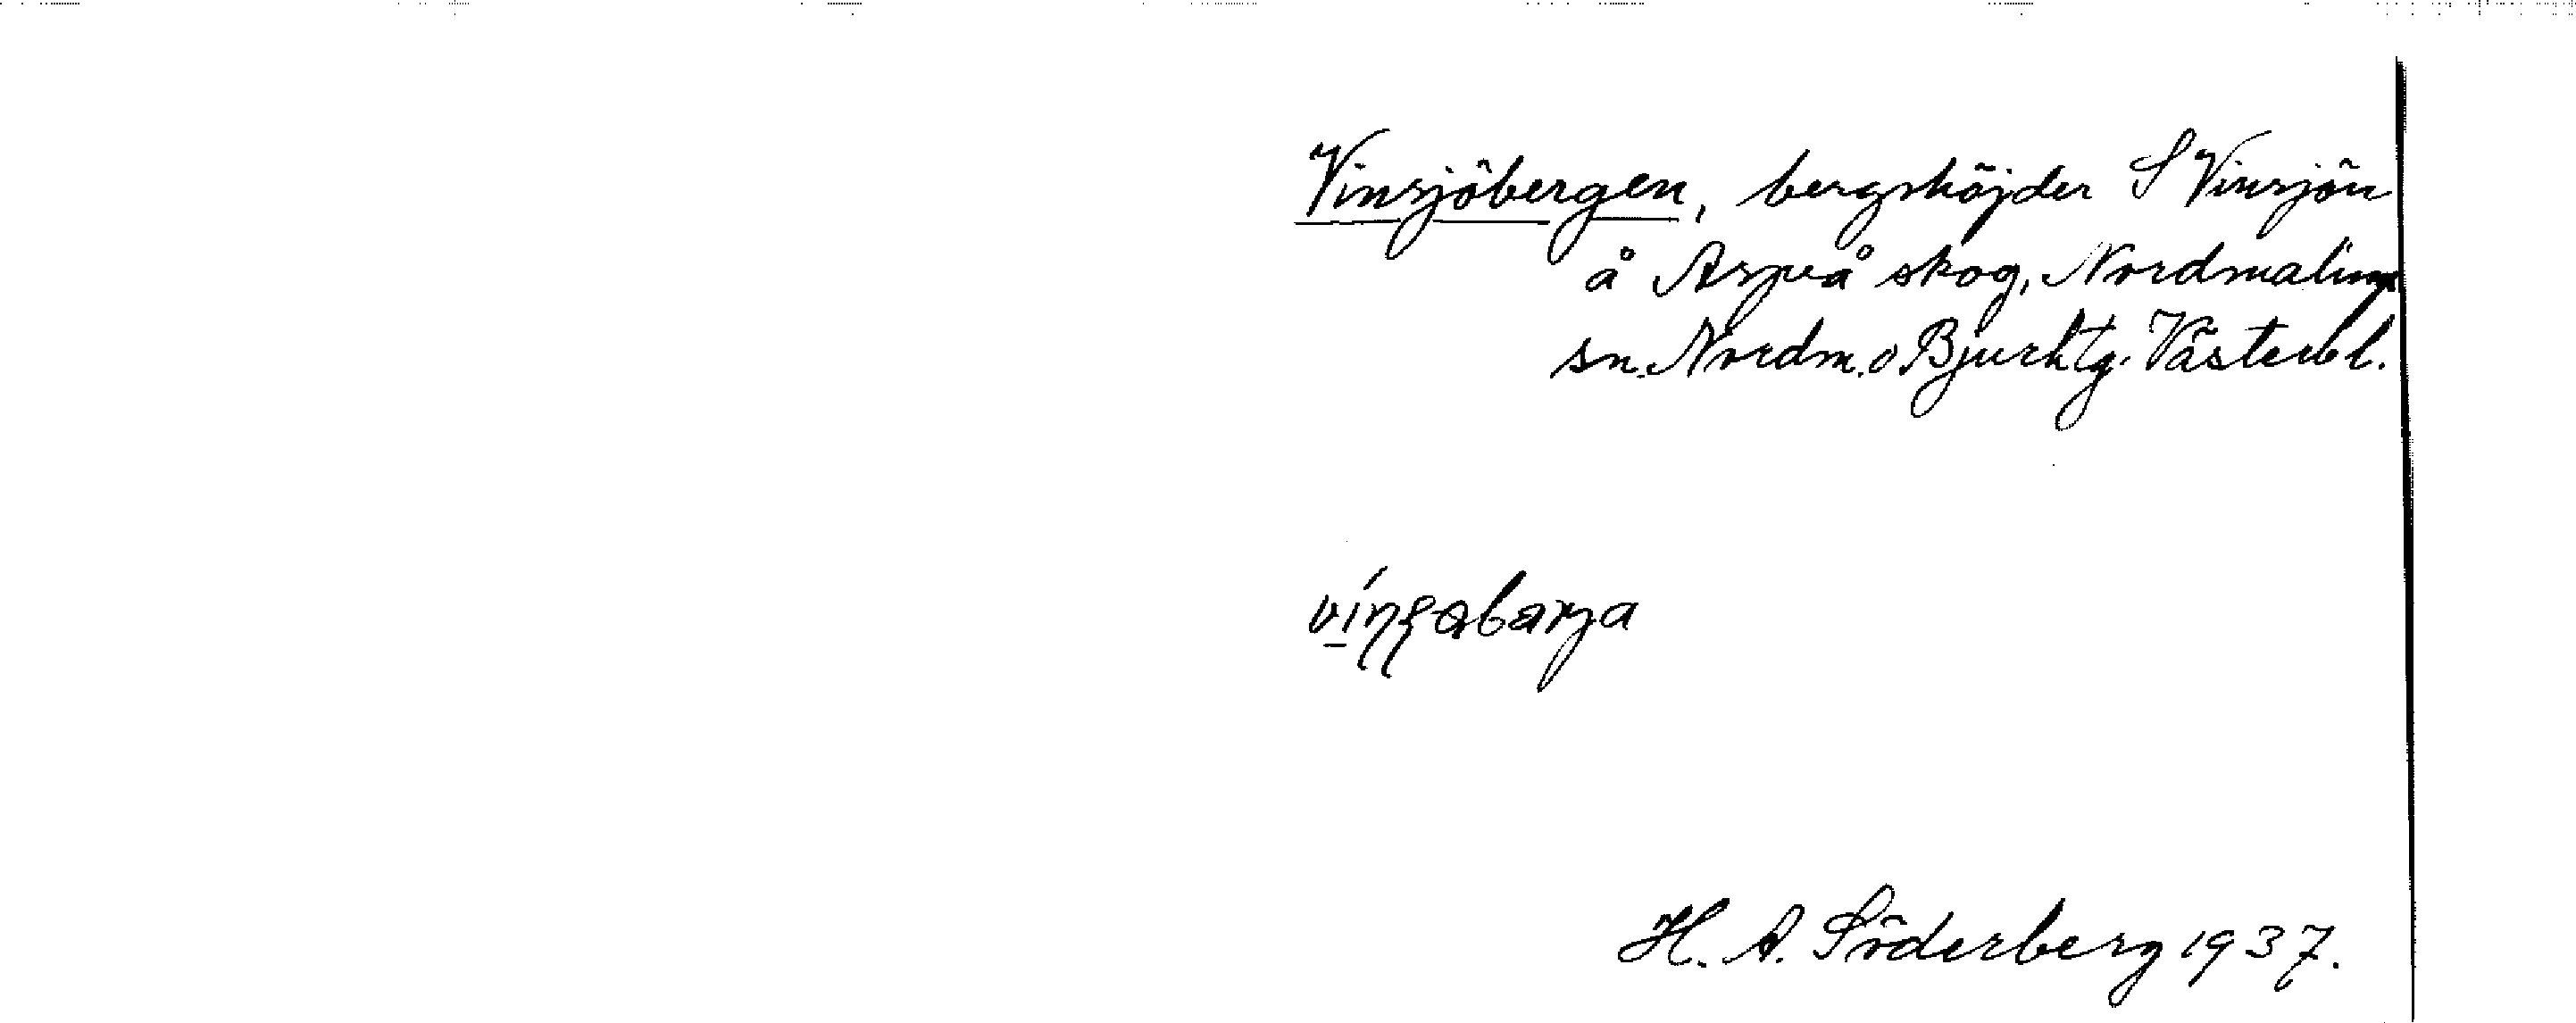 Vinsjöbergen, bergshöjder S Vinsjön
å Aspeå skog, Nordmalings
sn. Nordm. o Bjurh tg. Västerbl.
H. A. Söderberg 1937.